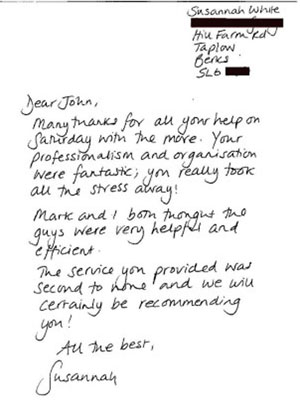 Susannah White
Hill Farm Rd
Taplow
Berks
SL6
Dear John,
Many thanks for all your help on
Saturday with the move. Your
professionalism and organisation
were fantastic; you really took
all the stress away!
Mark and I both thought the
guys were very helpful and
efficient.
The service you provided was
second to none and we will
certainly be recommending
you!
All the best,
Susannah